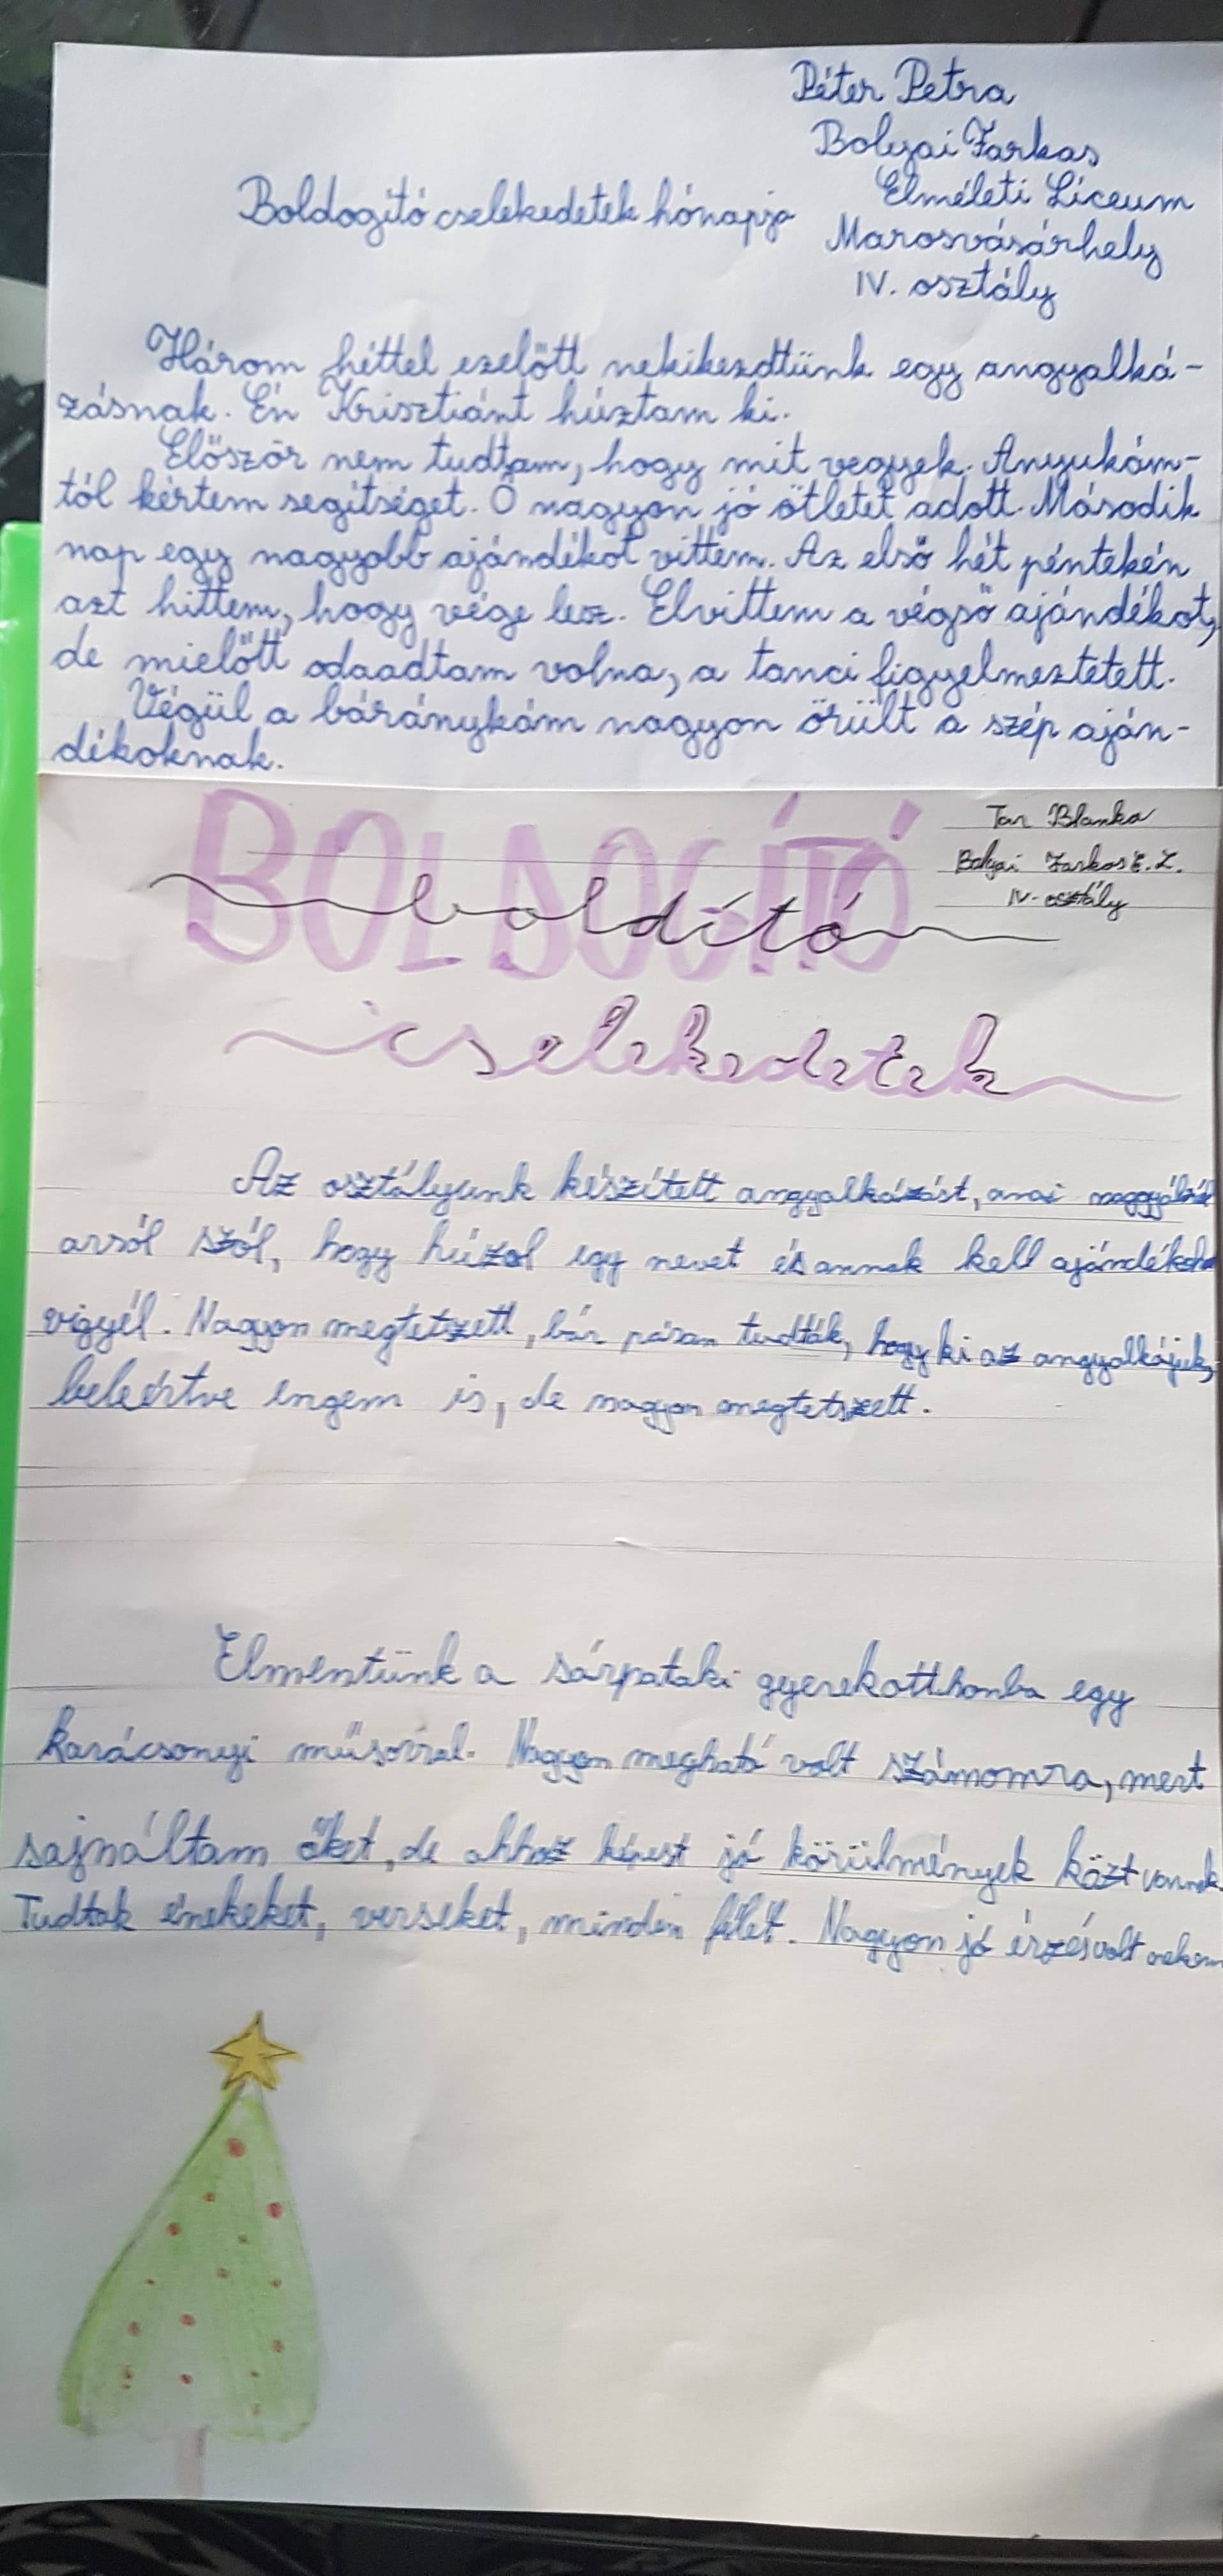 Péter Petra
Bolyai Farkas
Elméleti Líceum
Marosvásárhely
IV. osztály
Boldogító cselekedetek hónapja
Három héttel ezelőtt nekikezdtünk egy angyalká-
zásnak. Én Krisztiánt húztam ki.
Először nem tudtam, hogy mit vegyek. Anyukám-
tól kértem segítséget. Ő nagyon jó ötletet adott. Második
nap egy nagyobb ajándékot vittem. Az első hét péntekén
azt hittem, hogy vége lesz. Elvittem a végső ajándékot,
de mielőtt odaadtam volna, a tanci figyelmeztetett.
Végül a báránykám nagyon örült a szép aján-
dékoknak.
Tar Blanka
Bolyai Farkas E. L.
IV. osztály
BOLDOGÍTÓ
boldító
cselekedetek
Az osztályunk készített angyalkázást, ami nagyjából
arról szól, hogy húzol egy nevet és annak kell ajándékot
vigyél. Nagyon megtetszett, bár páran tudták, hogy ki az angyalkájuk,
beleértve engem is, de nagyon megtetszett.
Elmentünk a sárpataki gyerekotthonba egy
karácsonyi műsorral. Nagyon megható volt számomra, mert
sajnáltam őket, de ahhoz képest jó körülmények közt vannak.
Tudtak énekeket, verseket, minden félét. Nagyon jó érzés volt nekem